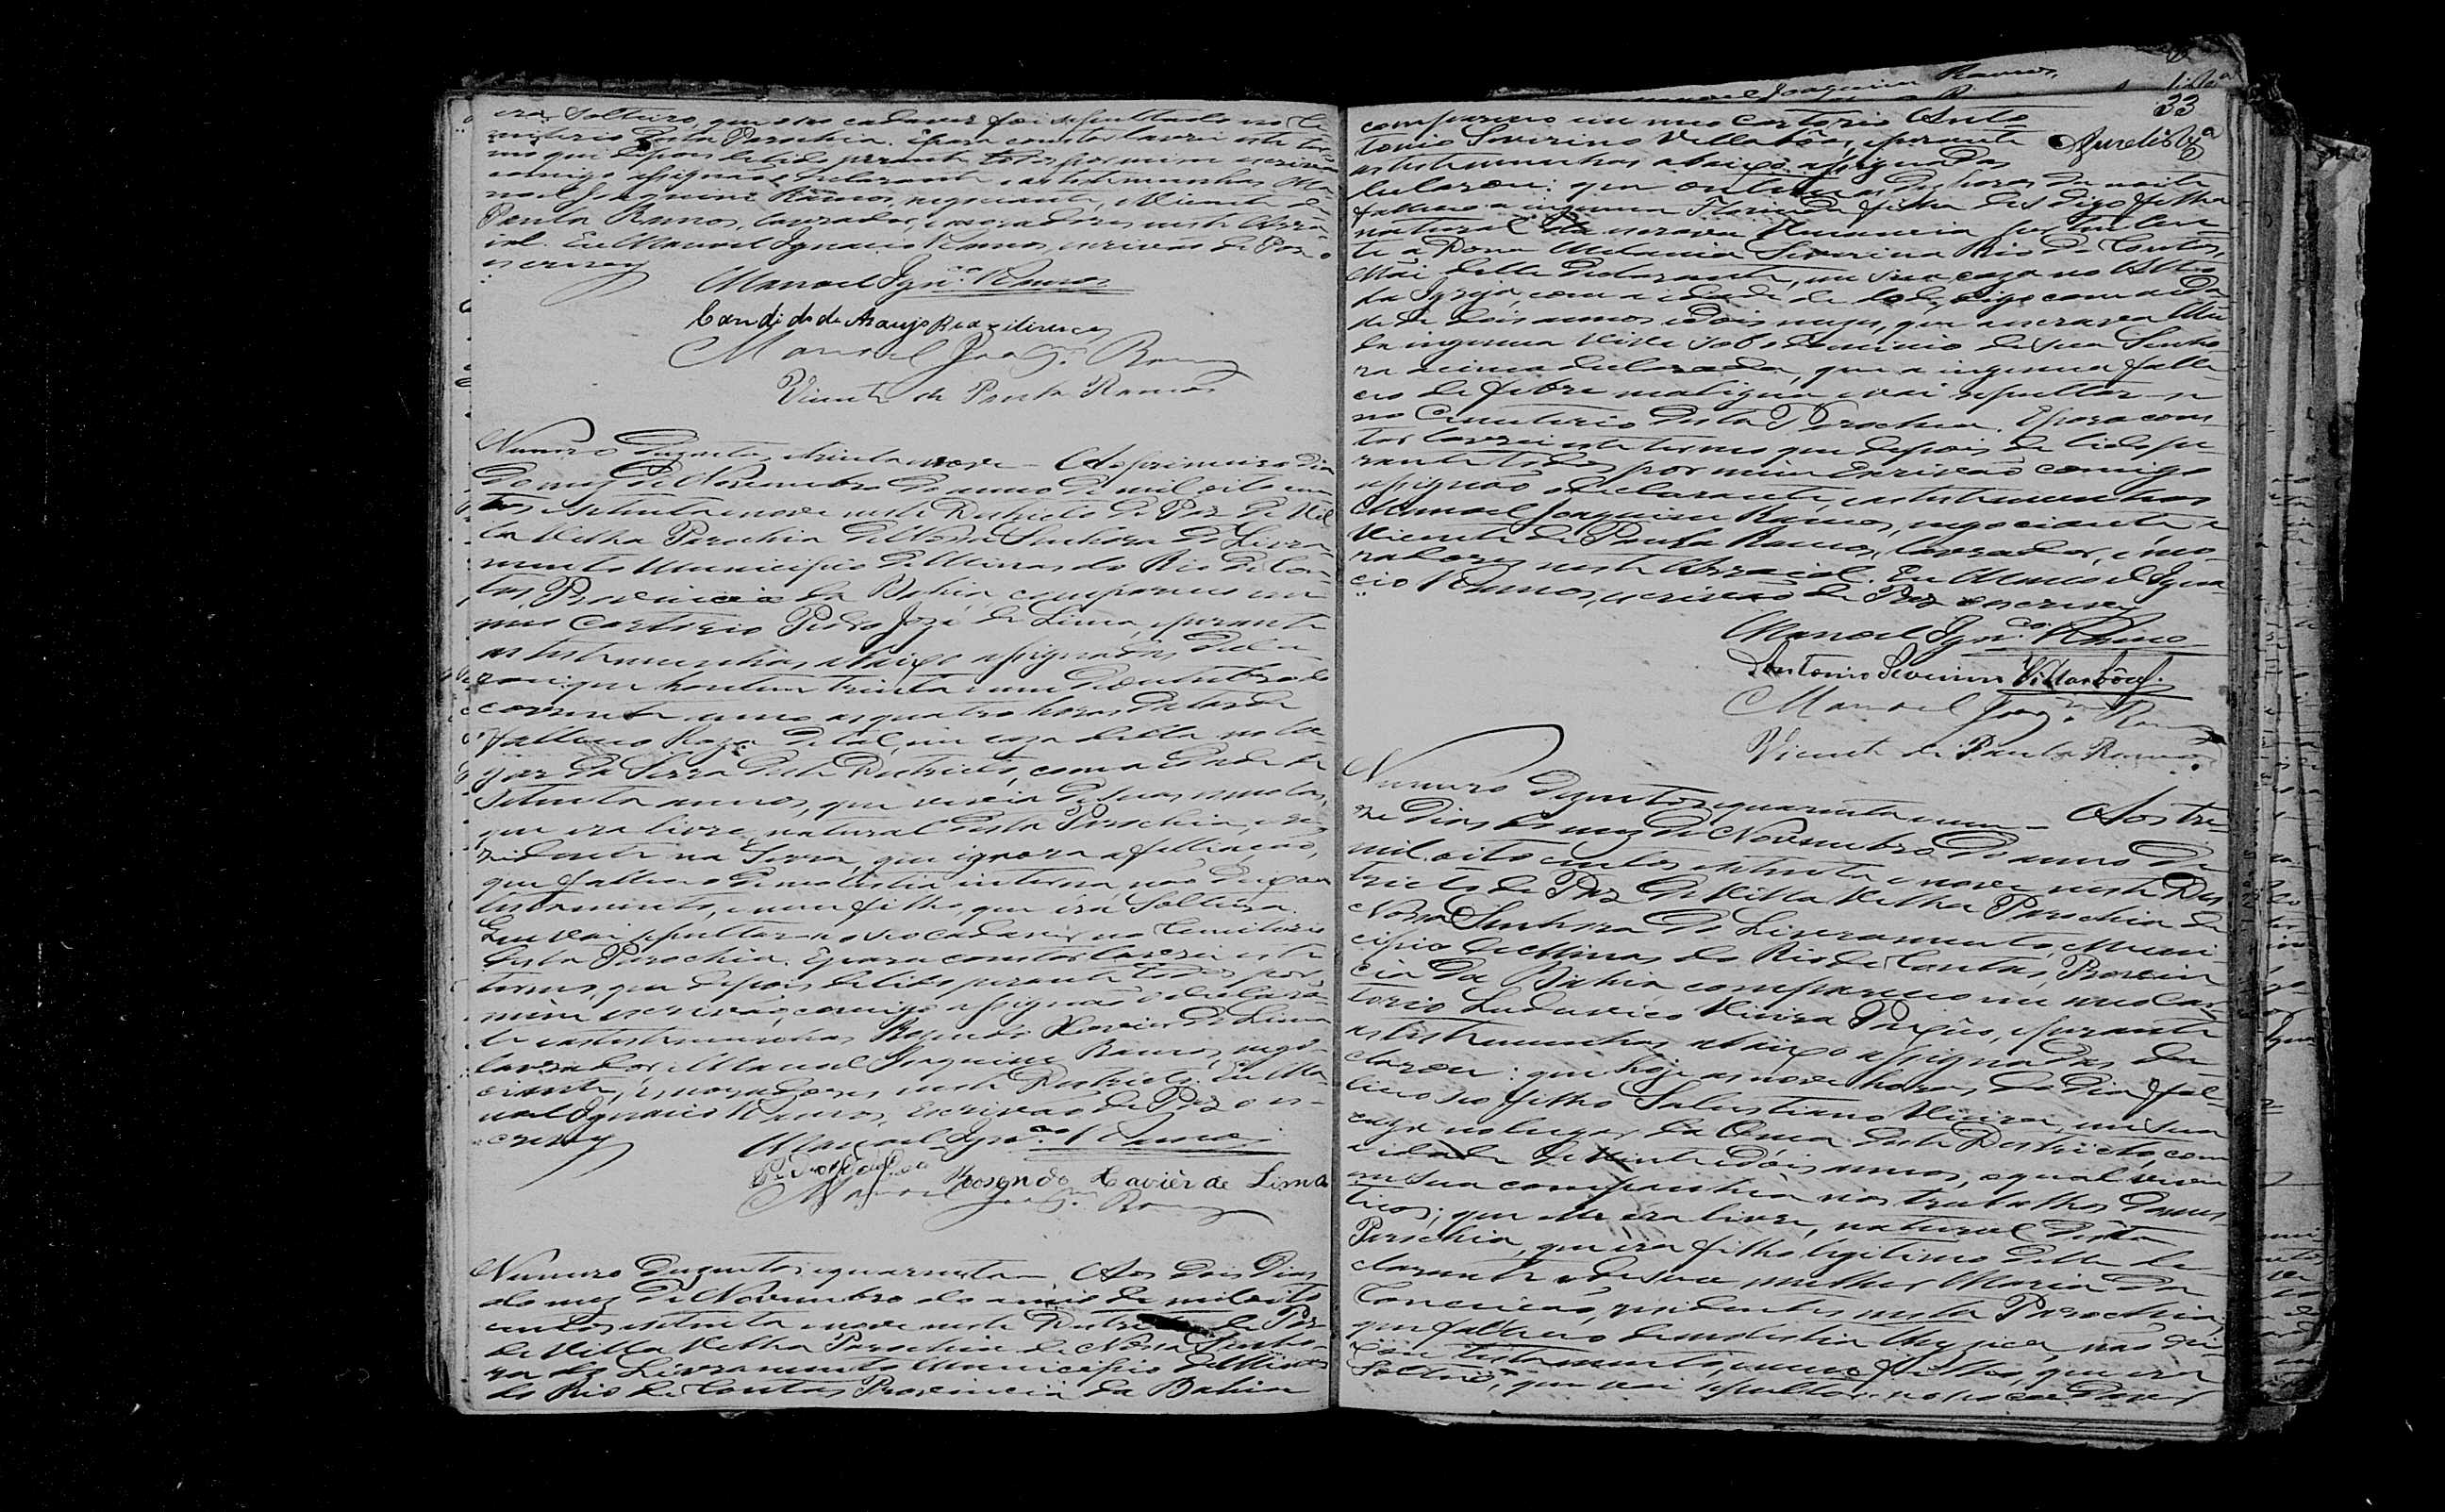 era Solteiro, que o seo cadaver foi sepultado no Ce-
miterio desta Parochia. E para constar lavrei este ter-
mo que depois de lido perante todos por mim escrivão
comigo assignão o declarante e as testemunhas Ma-
noel Joaquim Ramos, negociante, e Vicente de
Paula Ramos, lavrador, moradores neste Arra-
ial. Eu Manoel Ignacio Ramos, escrivão de Paz o
escrevy
Manoel Ign.co Ramos
Candido de Araujo
Manoel Joaq.m Ramos
Vicente de Paula Ramos
Numero duzentos e trinta e nove — Ao primeiro dia
do mez de Novembro do anno de mil oito cen
tos e setenta e nove neste Districto de Paz de Vil
la Velha Parochia de Nossa Senhora do Livra-
mento Municipio de Minas do Rio de Con-
tas, Provincia da Bahia compareceo em
meo Cartorio Pedro Jozé de Lima, e perante
as testemunhas abaixo assignadas decla-
rou: que hontem trinta e um de Outubro do
corrente anno as quatro horas da tarde
falleceo Roza de tal, em caza della no lu-
gar da Serra deste Districto, com a idade de
setenta annos, que vivia de suas
que era livre, natural desta Parochia, e re-
zidente na Serra, que ignora a filiação,
que falleceo de molestia interna, não deixou
testamento, e nem filho, que era Solteira.
Que vai sepultar-se o seo cadaver no Cemiterio
desta Parochia. E para constar lavrei este
termo, que depois de lido perante todos por
mim escrivão, comigo assignão o declaran-
te e as testemunhas Rozendo Xavier de Lima
lavrador, e Manoel Joaquim Ramos, nego-
ciante, e moradores neste Districto. Eu Ma-
noel Ignacio Ramos, Escrivão de Paz o es-
crevy
Manoel Ign.co Ramos
Rosendo Xavièr de Lima
Manoel Joaq.m Ramos
Numero duzentos e quarenta — Aos dois dias
do mez de Novembro do anno de mil oito
centos e setenta e nove neste Districto de Paz
de Villa Velha Parochia de Nossa Senho-
ra do Livramento Municipio de Minas
do Rio de Contas Provincia da Bahia
33
compareceo em meo Cartorio Anto
tonio Severino Villasbôas, e perante
as testemunhas abaixo assignadas
declarou: que ontem as dez horas da noite
falleceo a ingenua Florinda filha des digo filha
natural da escrava Venancia pertencen-
te a Dona Umbelina Severina Rio de Contas,
Mãi delle declarante, em sua caza no Alto
da Igreja, com a idade de dode, digo com a ida-
de de dois annos e dois mezes, que a escrava Mãi
da ingenua vive sob o dominio de sua Senho-
ra acima declarada, que a ingenua falle-
ceo de febre maligna e vai sepultar-se
no Cemiterio desta Parochia. E para cons
tar lavrei este termo que depois de lido pe-
rante todos por mim Escrivão comigo
assignão o declarante, e as testemunhas
Manoel Joaquim Ramos, negociante e
Vicente de Paula Ramos, lavrador, e mo-
radores neste Arraial. Eu Manoel Igna-
cio Ramos, escrivão de Paz o escrevy
Manoel Ign.co Ramos
Antonio Severino Villasbôas.
Manoel Joaq.m Ramos
Vicente de Paula Ramos
Numero duzentos e quarenta e um — Aos tre-
ze dias do mez de Novembro do anno de
mil oito centos e setenta e nove neste Dis
tricto de Paz de Villa Velha Parochia de
Nossa Senhora do Livramento, Muni-
cipio de Minas do Rio de Contas, Provin
cia da Bahia, compareceo em meo Car
torio Ludovico Vieira Paixão, e perante
as testemunhas abaixo assignadas de-
clarou: que hoje as nove horas do dia fal-
leceo seo filho Salustiano Vieira, em sua
caza no lugar da deste Districto, com
a idade de vinte e dois annos, o qual vivia
em sua companhia nos trabalhos domes
ticos; que elle era livre, natural desta
Parochia, que era filho legitimo delle de-
clarante e de sua mulher Maria da
Conceicão, rezidentes nesta Parochia,
que falleceo de molestia não dei-
xou testamento, e nem filho, que era
Solteiro, que vai sepultar-se o seo cadaver